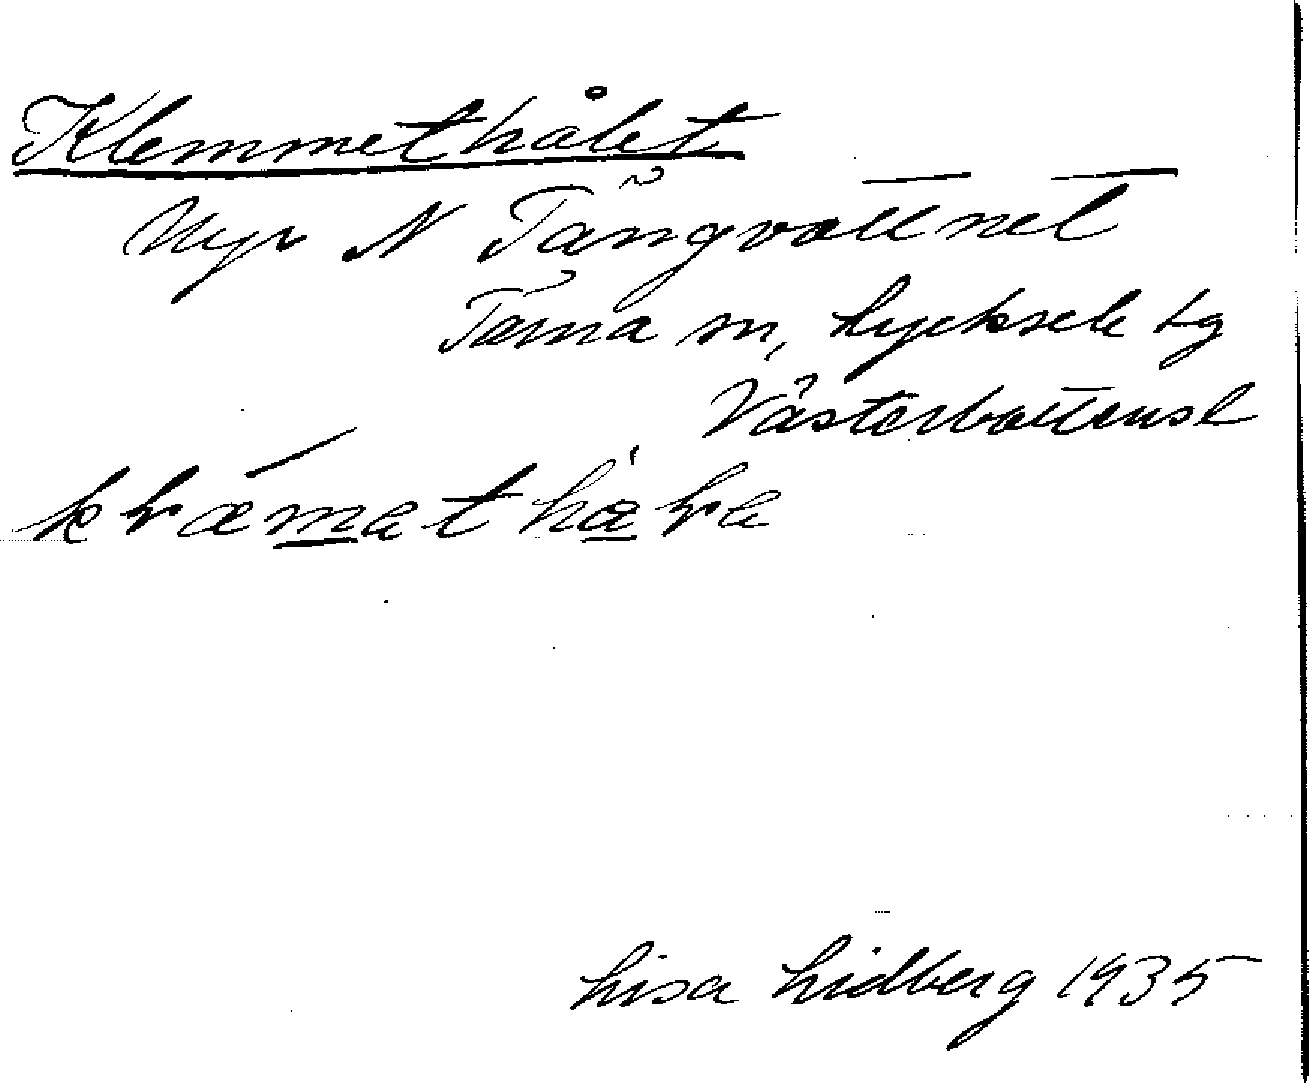 Klemmethålet
Myr N Tängvattnet
Tärna sn, Lycksele lg
Västerbottensl
Lisa Lidberg 1935